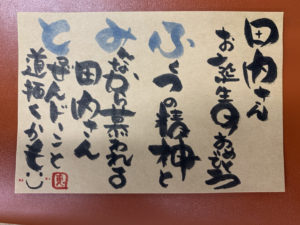 田内さん
お誕生日おめでとう
ふくつの精神と
みんなから慕われる
田内さん
と
道拓くかも